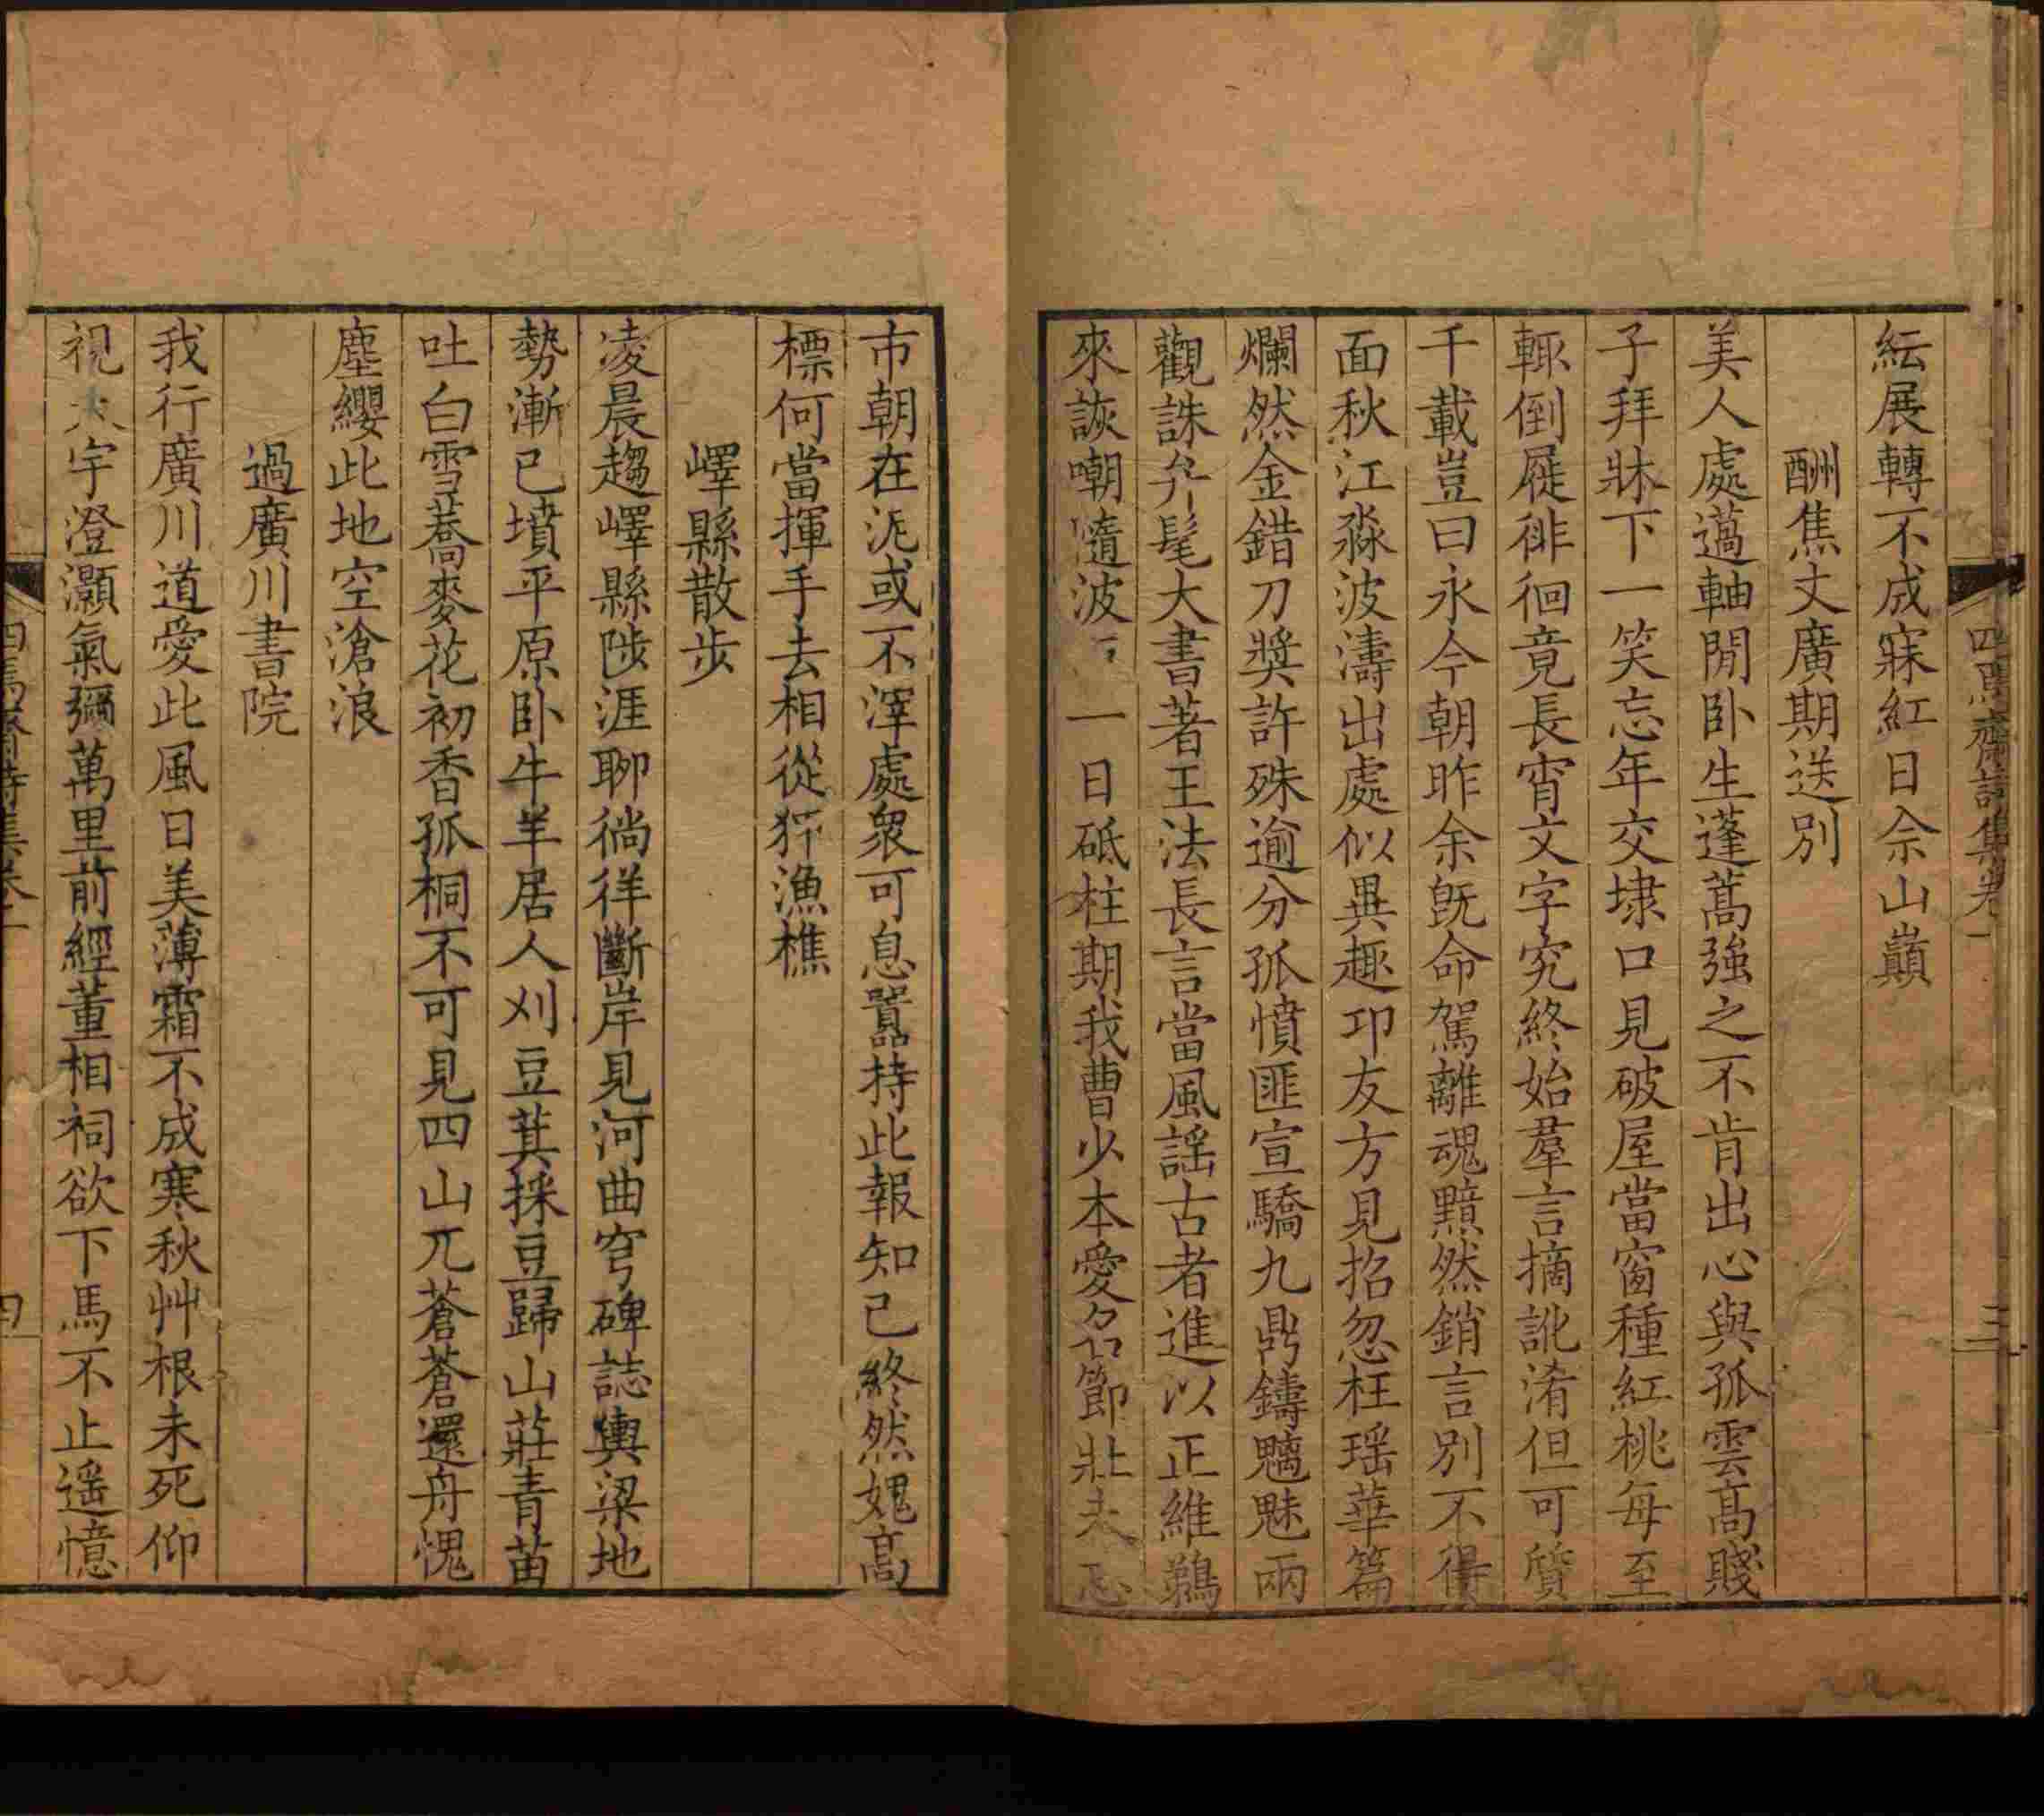 紜展轉不成寐紅日佘山巔
酬焦丈廣期送別
美人處薖軸閒卧生蓬蒿強之不肯出心與孤雲高賤
子拜牀下一笑忘年交埭口見破屋當窗種紅桃每至
輒倒屣徘徊竟長宵文字究終始羣言摘訛淆但可質
千載豈曰永今朝昨余旣命駕離魂黯然銷言別不得
面秋江淼波濤出處似異趣卭友方見招忽枉瑶華篇
爛然金錯刀獎許殊逾分孤憤匪宣驕九鼎鑄魑魅兩
觀誅弁髦大書著王法長言當風謡古者進以正維鵜
來詼嘲隨波 一日砥柱期我曹少本愛名節壯未忘
四焉齋詩集卷一
三
市朝在泥或不滓處衆可息嚣持此報知己終然媿高
標何當揮手去相從狎漁樵
嶧縣散步
凌晨趨嶧縣陟涯聊徜徉斷岸見河曲穹碑誌輿梁地
勢漸已墳平原卧牛羊居人刈豆萁採豆歸山莊青苗
吐白雪蕎麥花初香孤桐不可見四山兀蒼蒼還舟愧
塵纓此地空滄浪
過廣川書院
我行廣川道愛此風日美薄霜不成寒秋艸根未死仰
視太宇澄灝氣彌萬里前經董相祠欲下馬不止遥憶
四焉齋詩集卷一
四